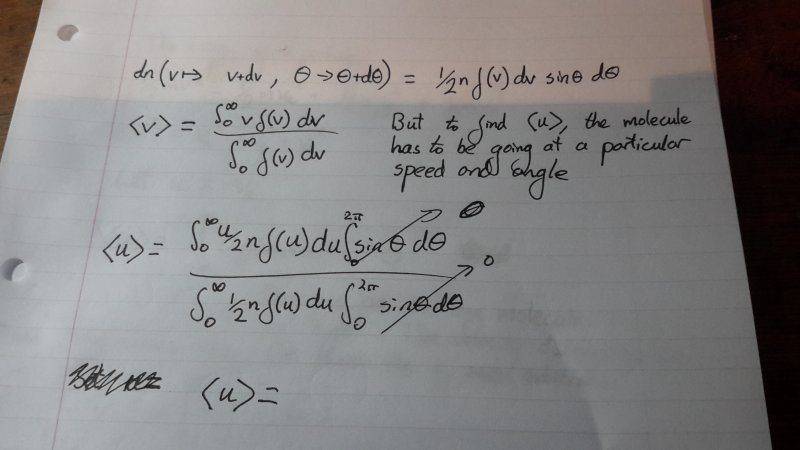 dn(v↦ v+dv, θ→θ+dθ) = ½n f(v) dv sinθ dθ
⟨v⟩ = ∫₀^∞ v f(v) dv / ∫₀^∞ f(v) dv
But to find ⟨u⟩, the molecule
has to be going at a particular
speed and angle
⟨u⟩ = ∫₀^∞ u ½ n f(u) du ∫₀^2π sinθ dθ 0 / ∫₀^∞ ½ n f(u) du ∫₀^2π sinθ dθ 0
⟨u⟩ =